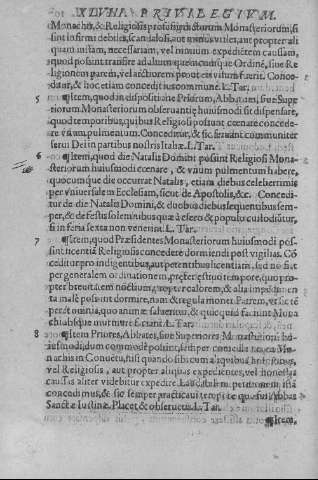 PRIVILEGIVM.
Monachi, & Religiosi professi dictorum Monasteriorum, si
sint infirmi debiles, scandalosi, aut minus vtiles, aut propter ali
quam iustam, necessariam, vel nimium expedientem caussam,
quod possint transire ad alium quemcunque Ordinẽ, siue Re
ligionem parem, vel arctiorem prout eis visum fuerit. Conce
datur, & hoc etiam conceditur communiter. L. Tar.
5 ¶Item, quod in dispositione Priorum, Abbatum, siue Supe
riorum Monasteriorum obseruantię huiusmodi sit dispensare,
quo temporibus, quibus Religiosi possunt cœnare concede-
re vnum pulmentum. Conceditur, & sic seruant communiter
serui Dei in partibus nostris Italiæ. L. Tar.
6 ¶Item, quod die Natalis Domini possint Religiosi Mona
steriorum huiusmodi cœnare, & vnum pulmentum habere,
quocumque die occurrat Natalis, etiam diebus celeberrimis
per vniuersale in Ecclesiam, sicut de Apostolis, &c. Concedi
tur de die Natalis Domini, & duobus diebus sequentibus sem-
per, & de festis solemnibus quæ à clero & populo custoditur,
si in feria sexta non venerint. L. Tar.
7 ¶Item, quod Præsidentes Monasteriorum huiusmodi pos-
sint licentiã Religiosis concedere dormiendi post vigilias. Cõ
ceditur pro indigentibus, aut petentibus licentiam, sed nõ fiat
per generalem ordinationem, præter æstiuo tempore, quo pro
pter breuitatem noctium, propter calorem, & alia impedimen
ta malè possunt dormire, nam & regula monet Patrem, vt sic tẽ
peret omnia, quo animæ saluentur, & quicquid faciunt Mona
chi absque murmure faciant. L. Tar.
8 ¶Item Priores, Abbates, siue Superiores Monasteriorũ hu
iusmodi, dum commodè possint, semper comedant cum Mo
nachis in Conuẽtu, nisi quando sibi cum aliquibus hospitibus,
vel Religiosis, aut propter aliquas expedientes, vel honestas
caussas aliter videbitur expedire. Laudabilem petitionem istã
concedimus, & sic semper practicaui tempore quo fui Abbas
Sanctæ Iustinæ. Placet & obseruetur. L. Tar.
¶Item,